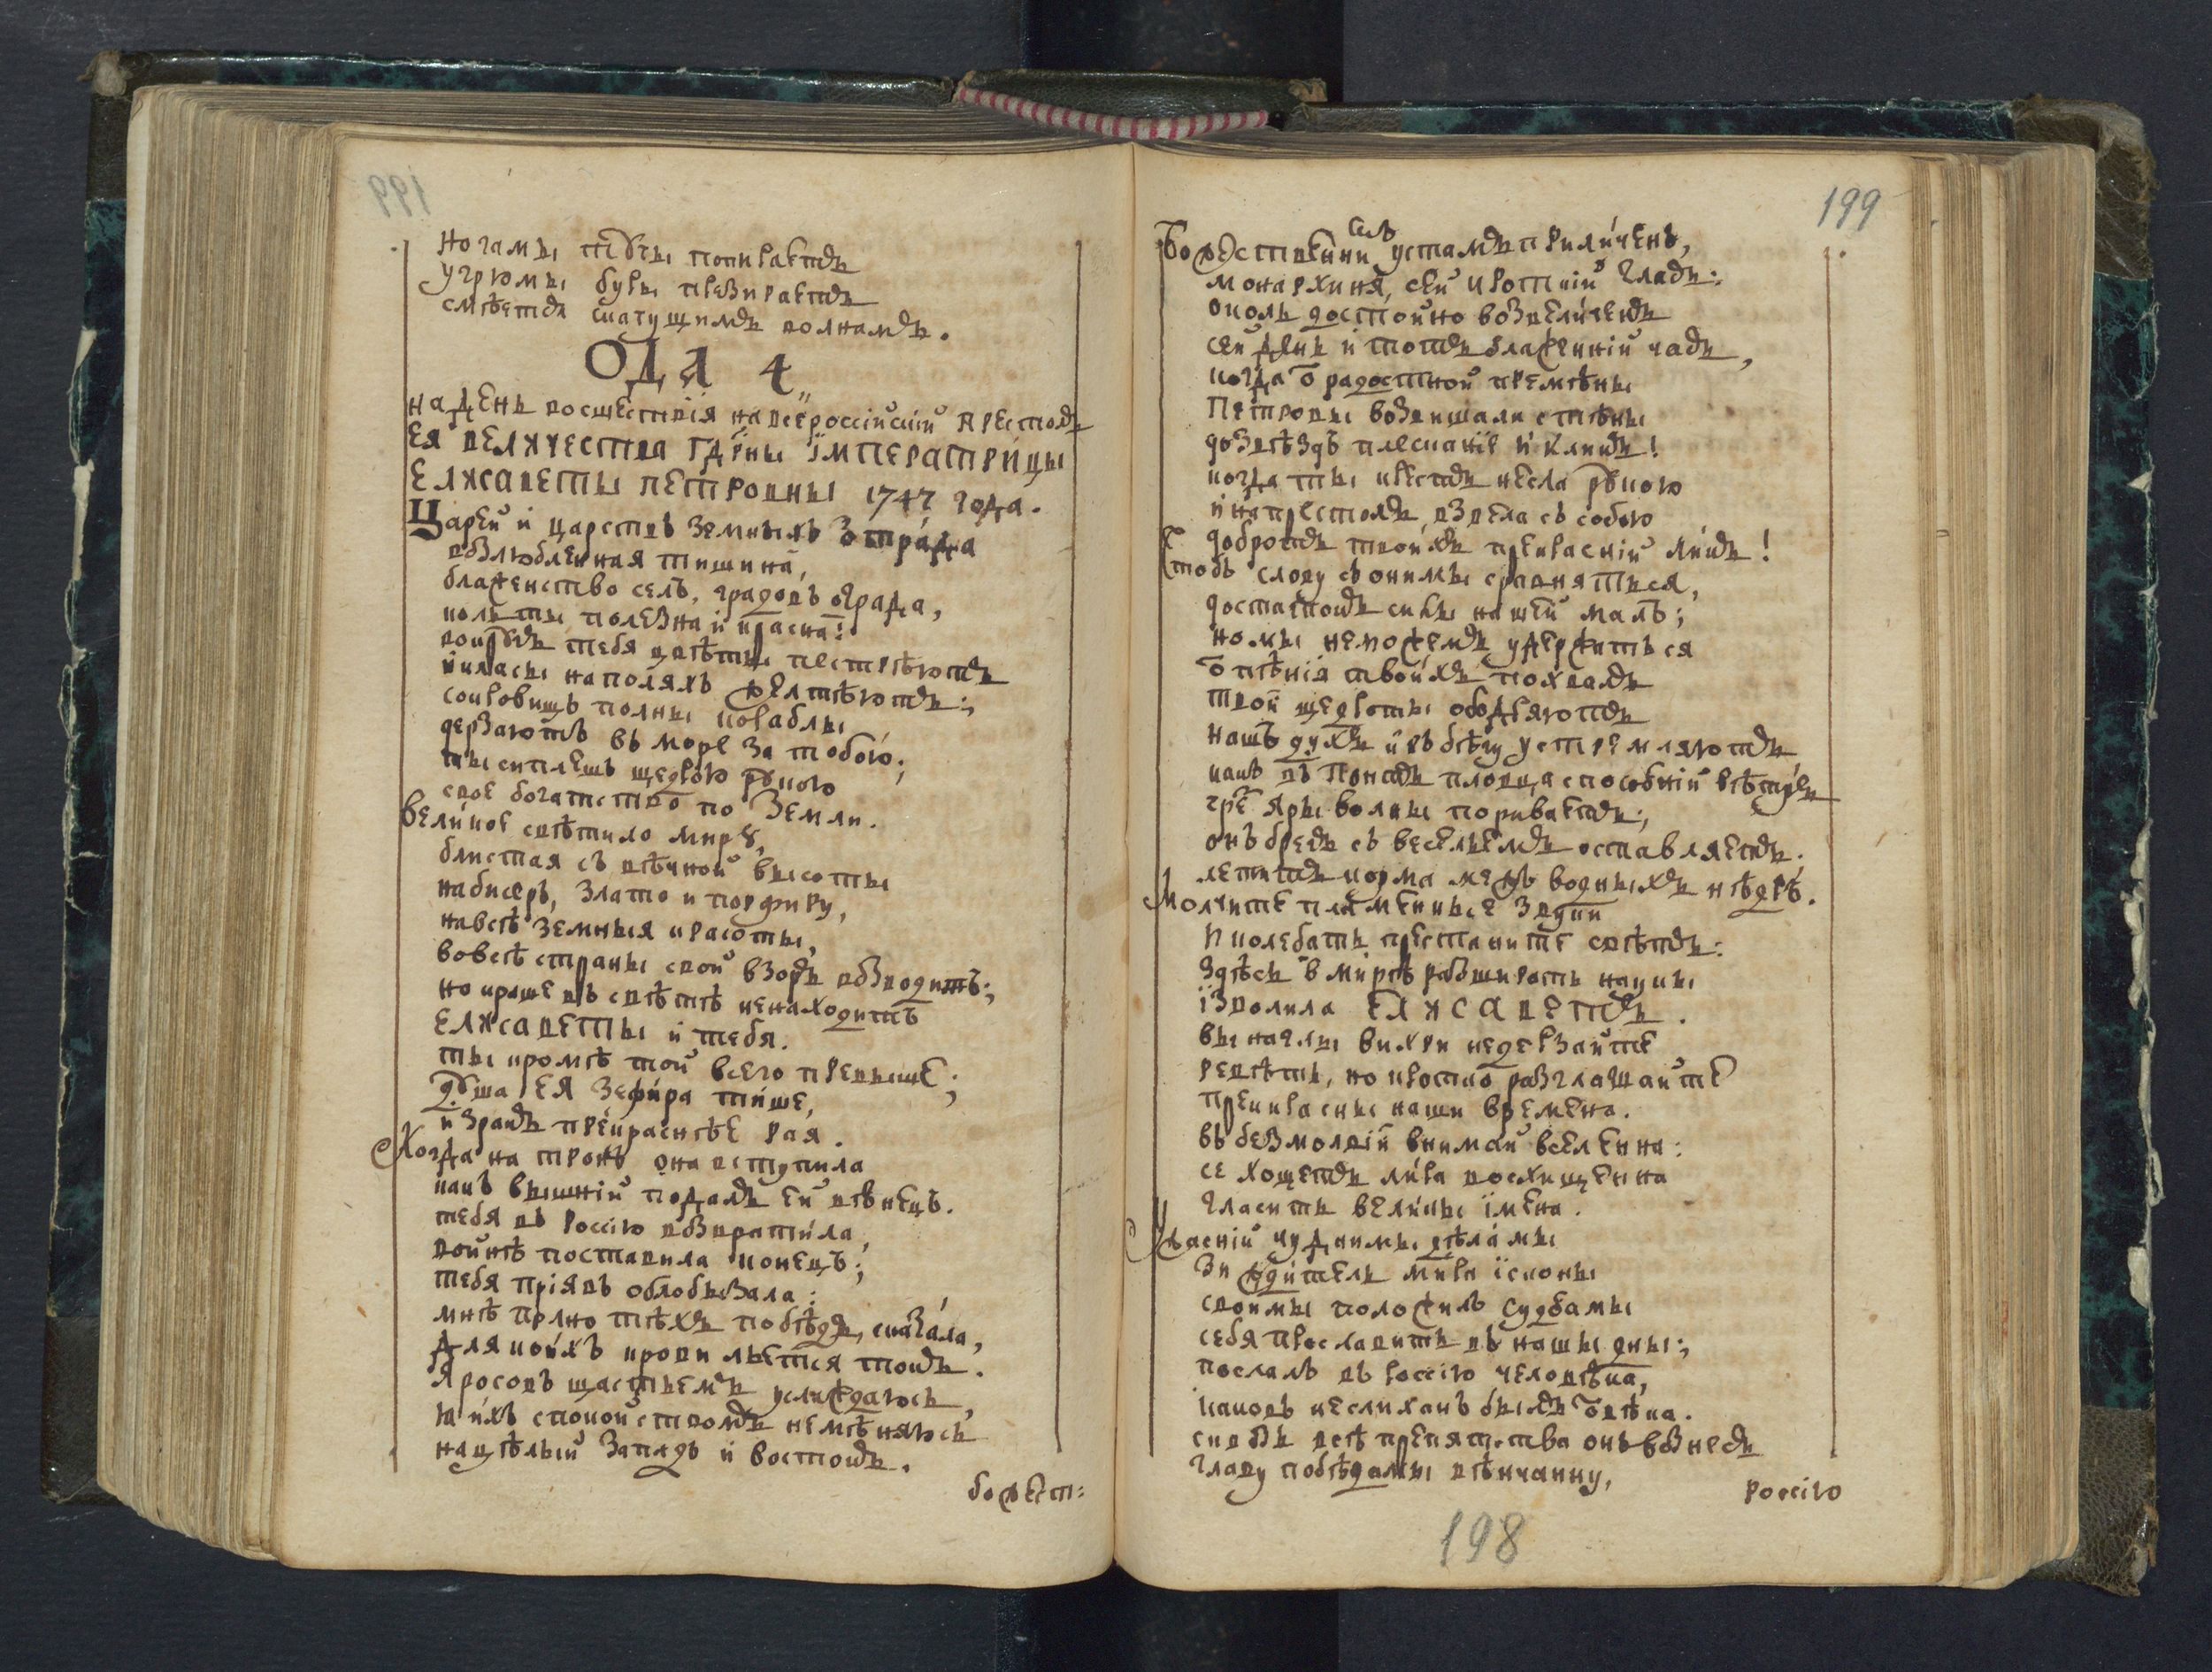 ногамы тꙋчы попираетъ
угрюмы буры презираетъ
смѣется скачущимъ волнамъ.
ОДА 4„
на день восшествїя на всероссїйскїй престолъ
ея величества гдⷭ҇рны їмператрицы
елисаветы петровны 1747 года.
Царей и царствъ земныхъ ѿрада
возлюбленная тишина,
блаженство селъ, градовъ ограда,
коль ты полезна и красна!
вокрꙋгъ тебя цвѣты пестрѣютъ
и класы на поляхъ желтѣютъ;
сокровищъ полны кораблы
дерзаютъ въ море за тобою;
ты сиплешъ щедрою рꙋкою
свое богатство по земли.
великое свѣтило мирꙋ,
блистая съ вѣчной высоты
на бисеръ, злато и порфиру,
на всѣ земныя красоты,
во всѣ страны свой взоръ возводитъ;
но краше въ свѣтѣ ненаходитъ
елисаветы и тебя.
ты кромѣ той всего превыше;
дꙋша ея зефира тише,
и зракъ прекраснѣе рая.
Когда на тронъ она вступила
какъ вышнїй подалъ ей вѣнецъ.
тебя въ россїю возвратила,
войнѣ поставила конецъ;
тебя прїявъ облобызала:
мнѣ полно тѣхъ побѣдъ, сказала,
для коихъ крови льется токъ.
я россовъ щастьемъ услаждаюсь,
я ихъ спокойствомъ немѣняюсь
на цѣлый западъ и востокъ.
божест:
199
Божественни симъ устамъ приличенъ,
монархиня, сей кроткїй гласъ:
о коль достойно возвеличенъ
сей день и тотъ блаженнїй часъ,
когда ѿ радостной премѣны
Петровы возвишали стѣны
до звѣздъ плесканїе и кликъ!
когда ты крестъ несла рꙋкою
и на престолъ взвела съ собою
добротъ твоихъ прекраснїй ликъ!
Чтобъ слову съ онимы сравняться,
достатокъ силы нашей малъ;
но мы неможемъ удержиться
ѿ пѣнїя твоихъ похвалъ
твои щедроты ободряютъ
нашъ духъ и къ бѣгу устремляютъ,
какъ въ Понтъ пловца способнїй вѣтръ
чреⷥ яры волны порываетъ;
онъ брегъ съ весельемъ оставляетъ.
летитъ корма межъ водныхъ нѣдръ.
Молчите пламенные звуки
и колебать престаните свѣтъ:
здѣсь в мирѣ разширять науки
їзволила ЕЛИСАВЕТЪ.
вы наглы вихри недерзайте
ревѣть, но кротко разглашайте
прекрасны наши времена.
въ безмолвїи внимай вселенна:
се хощетъ лира восхищенна
гласить велики їмена.
Ужаснїй чудними дѣлами
зиждитель мира їсконы
своимы положилъ судбамы
себя прославить въ нашы дны;
послалъ въ россїю человѣка,
каковъ неслиханъ былъ ѿ вѣка.
сквозь всѣ препятства онъ вознесъ
главу побѣдамы вѣнчанну,
россїю
198